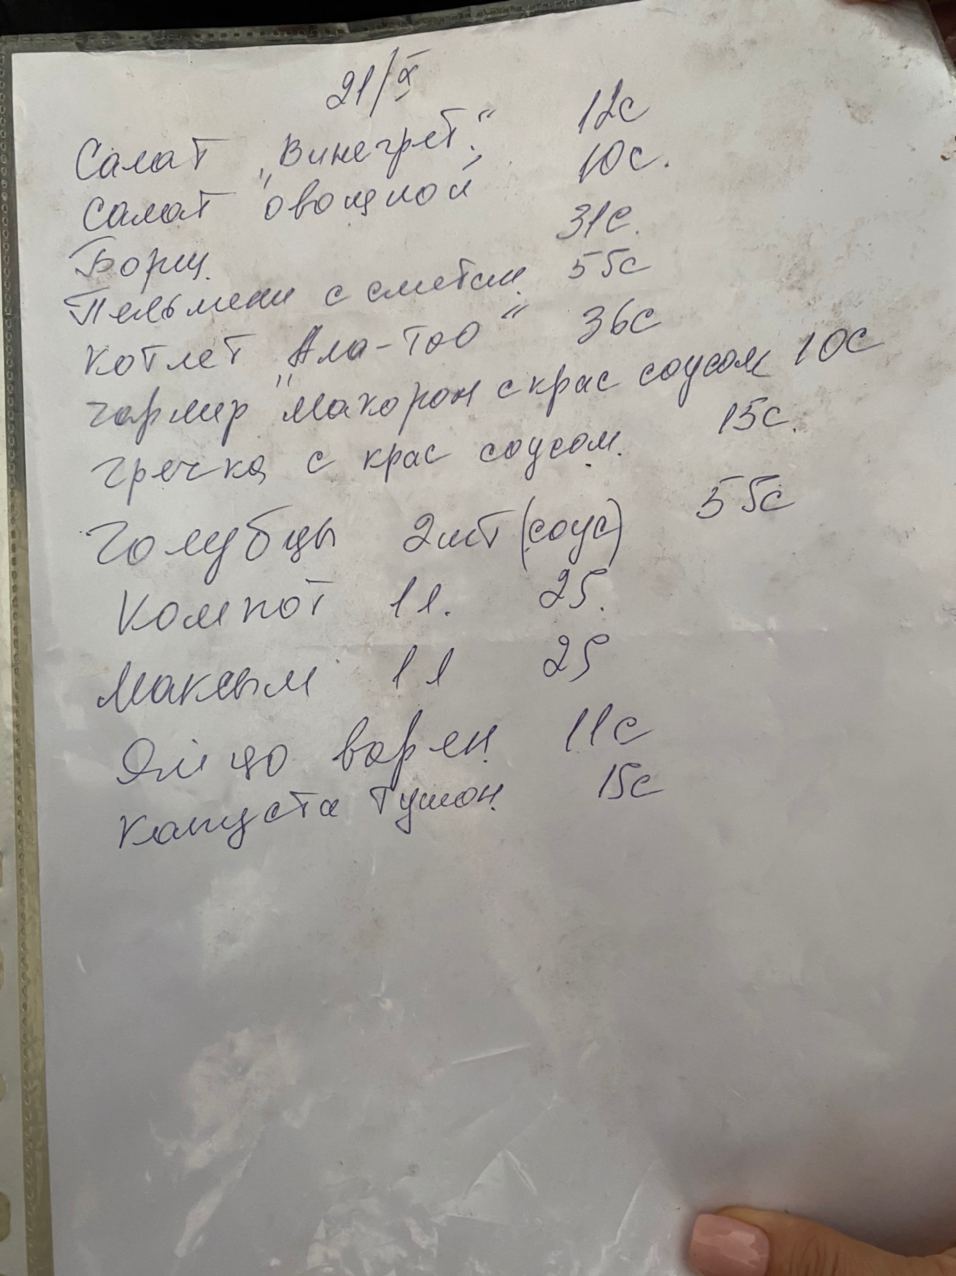 21/X
Салат „Винегрет" 12с
Салат "овощной 10с.
Борщ 31с.
Пельмени с сметан 55с
Котлет "Ала-Тоо" 36с
Гарнир "Макарон с крас соусом 10с
Гречка с крас соусом. 15с.
Голубцы 2шт (соус) 55с
Компот 1л. 25.
Максым 1л 25
Яйцо варен 11с
Капуста тушон 15с